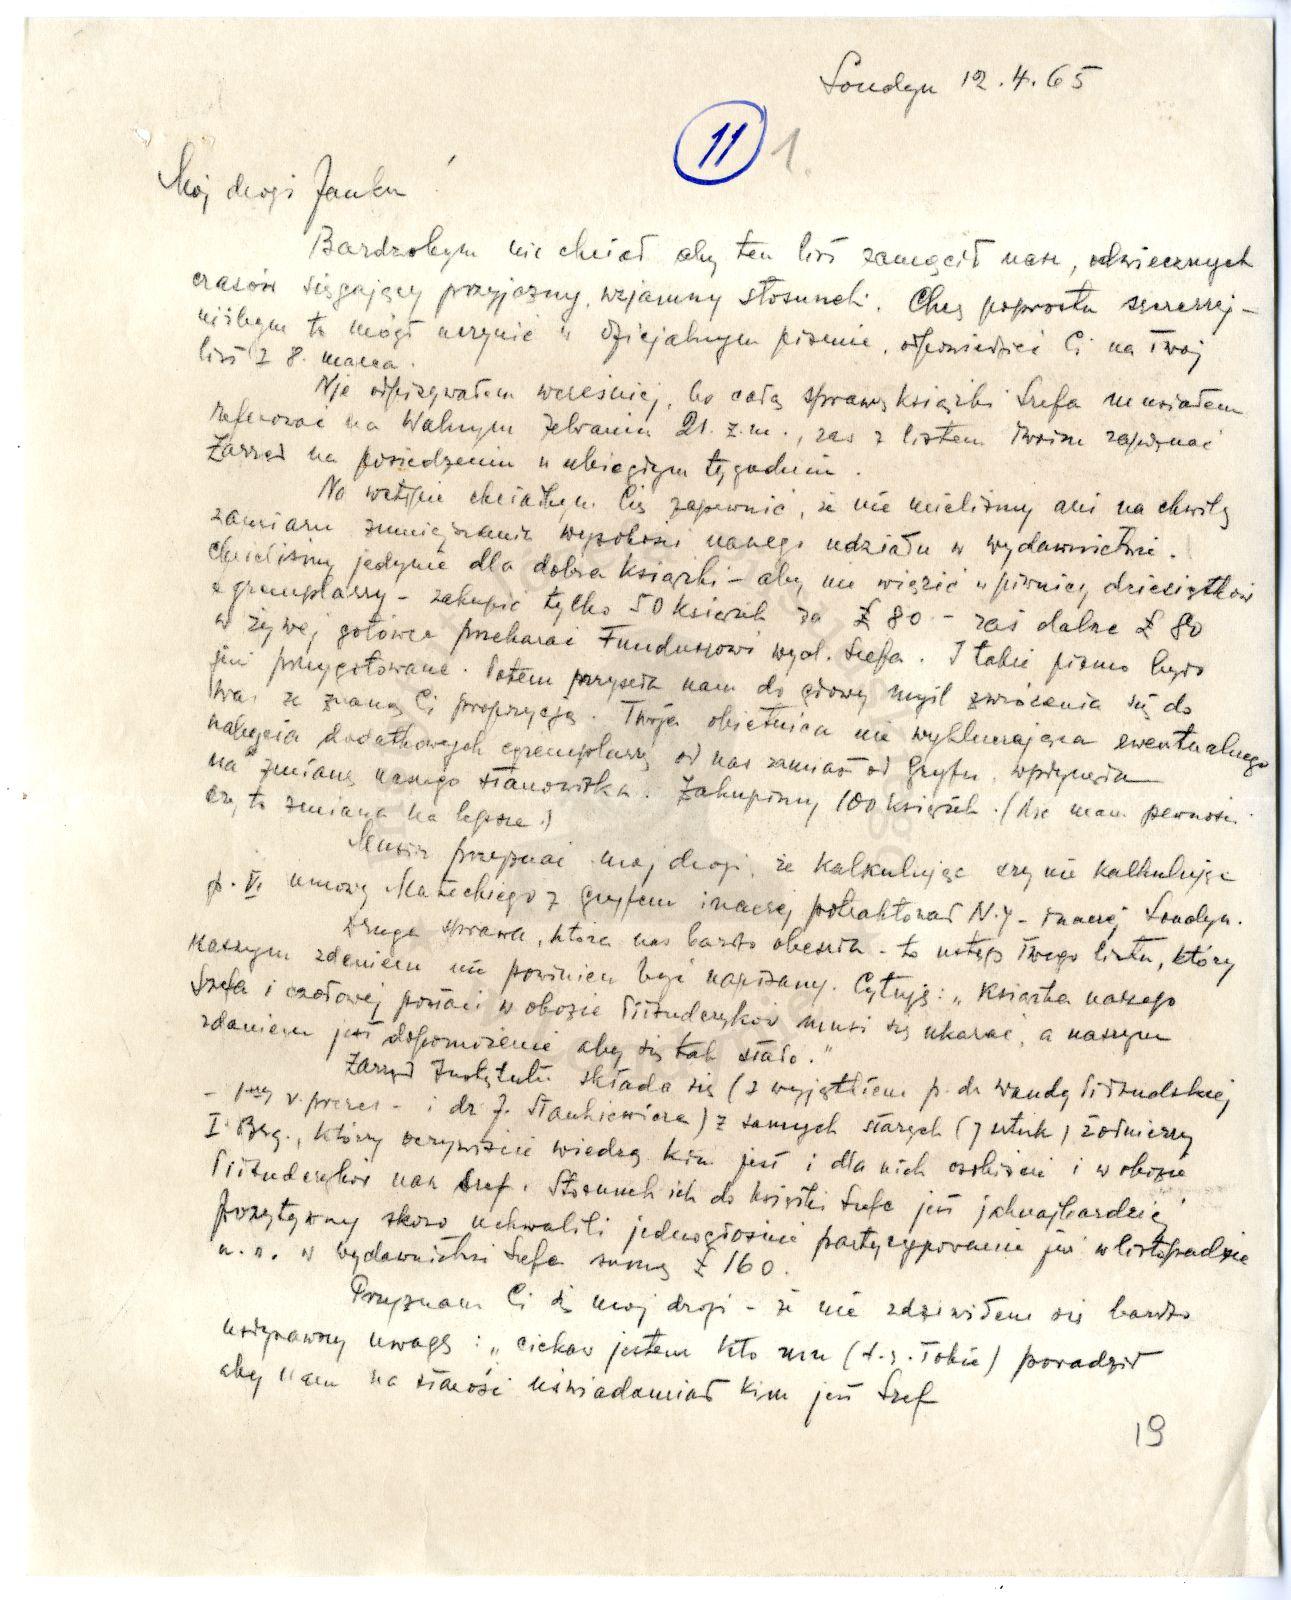 Londyn 12.4.65
11 1.
Mój drogi Janku
Bardzobym nie chciał aby ten list zamącił nasz, odwiecznych
czasów sięgający przyjazny, wzjamny stosunek. Chcę poprostu szczerzej –
niżbym to mógł uczynić w oficjalnym piśmie, odpowiedzieć Ci na Twój
list z 8. marca.
Nie odpisywałem wcześniej, bo całą sprawę książki Szefa musiałem
referować na Walnym Zebraniu 21. z.m., zaś z listem Twoim zapoznać
Zarząd na posiedzeniu w ubiegłym tygodniu.
Na wstępie chciałbym Cię zapewnić, że nie mieliśmy ani na chwilę
zamiaru zmniejszania wysokości naszego udziału w wydawnictwie.
Chcieliśmy jedynie dla dobra książki – aby nie więzić w piwnicy dziesiątków
egzemplarzy – zakupić tylko 50 książek za £ 80 – zaś dalsze £ 80
w żywej gotówce przekazać Funduszowi wyd. Szefa. I takie pismo było
już przygotowane. Potem przyszła nam do głowy myśl zwrócenia się do
Was ze znaną Ci propozycją. Twoja obietnica nie wykluczająca ewentualnego
nabycia dodatkowych egzemplarzy od nas zamiast od Gryfu, wpłynęła
na zmianę naszego stanowiska. Zakupimy 100 książek. (Nie mam pewności
czy to zmiana na lepsze.)
Muszę przyznać mój drogi, że kalkulując czy nie kalkulując
p. V. umowy Małeckiego z Gryfem inaczej potraktował N.Y – inaczej Londyn.
Druga sprawa, która nas bardzo obeszła – to ustęp Twego listu, który
naszym zdaniem nie powinien być napisany. Cytuję: „Książka naszego
Szefa i czołowej postaci w obozie Piłsudczyków musi się ukazać, a naszym
zdaniem jest dopomożenie aby się tak stało.”
Zarząd Instytutu składa się (z wyjątkiem p. dr Wandy Piłsudskiej
– v. prezes – i dr J. Stankiewicza) z samych starych (7 sztuk) żołnierzy
I. Bryg., którzy oczywiście wiedzą kim jest i dla nich osobiście i w obozie
Piłsudczyków nasz Szef. Stosunek ich do książki Szefa jest jaknajbardziej
pozytywny skoro uchwalili jednogłośnie partycypowanie już w listopadzie
u. r. w wydawnictwie Szefa sumą £ 160.
Przyznam Ci się mój drogi – że nie zdziwiłem się bardzo
usłyszawszy uwagę: „ciekaw jestem kto mu (t.z. Tobie) poradził
aby nam na starość uświadamiał kim jest Szef
19